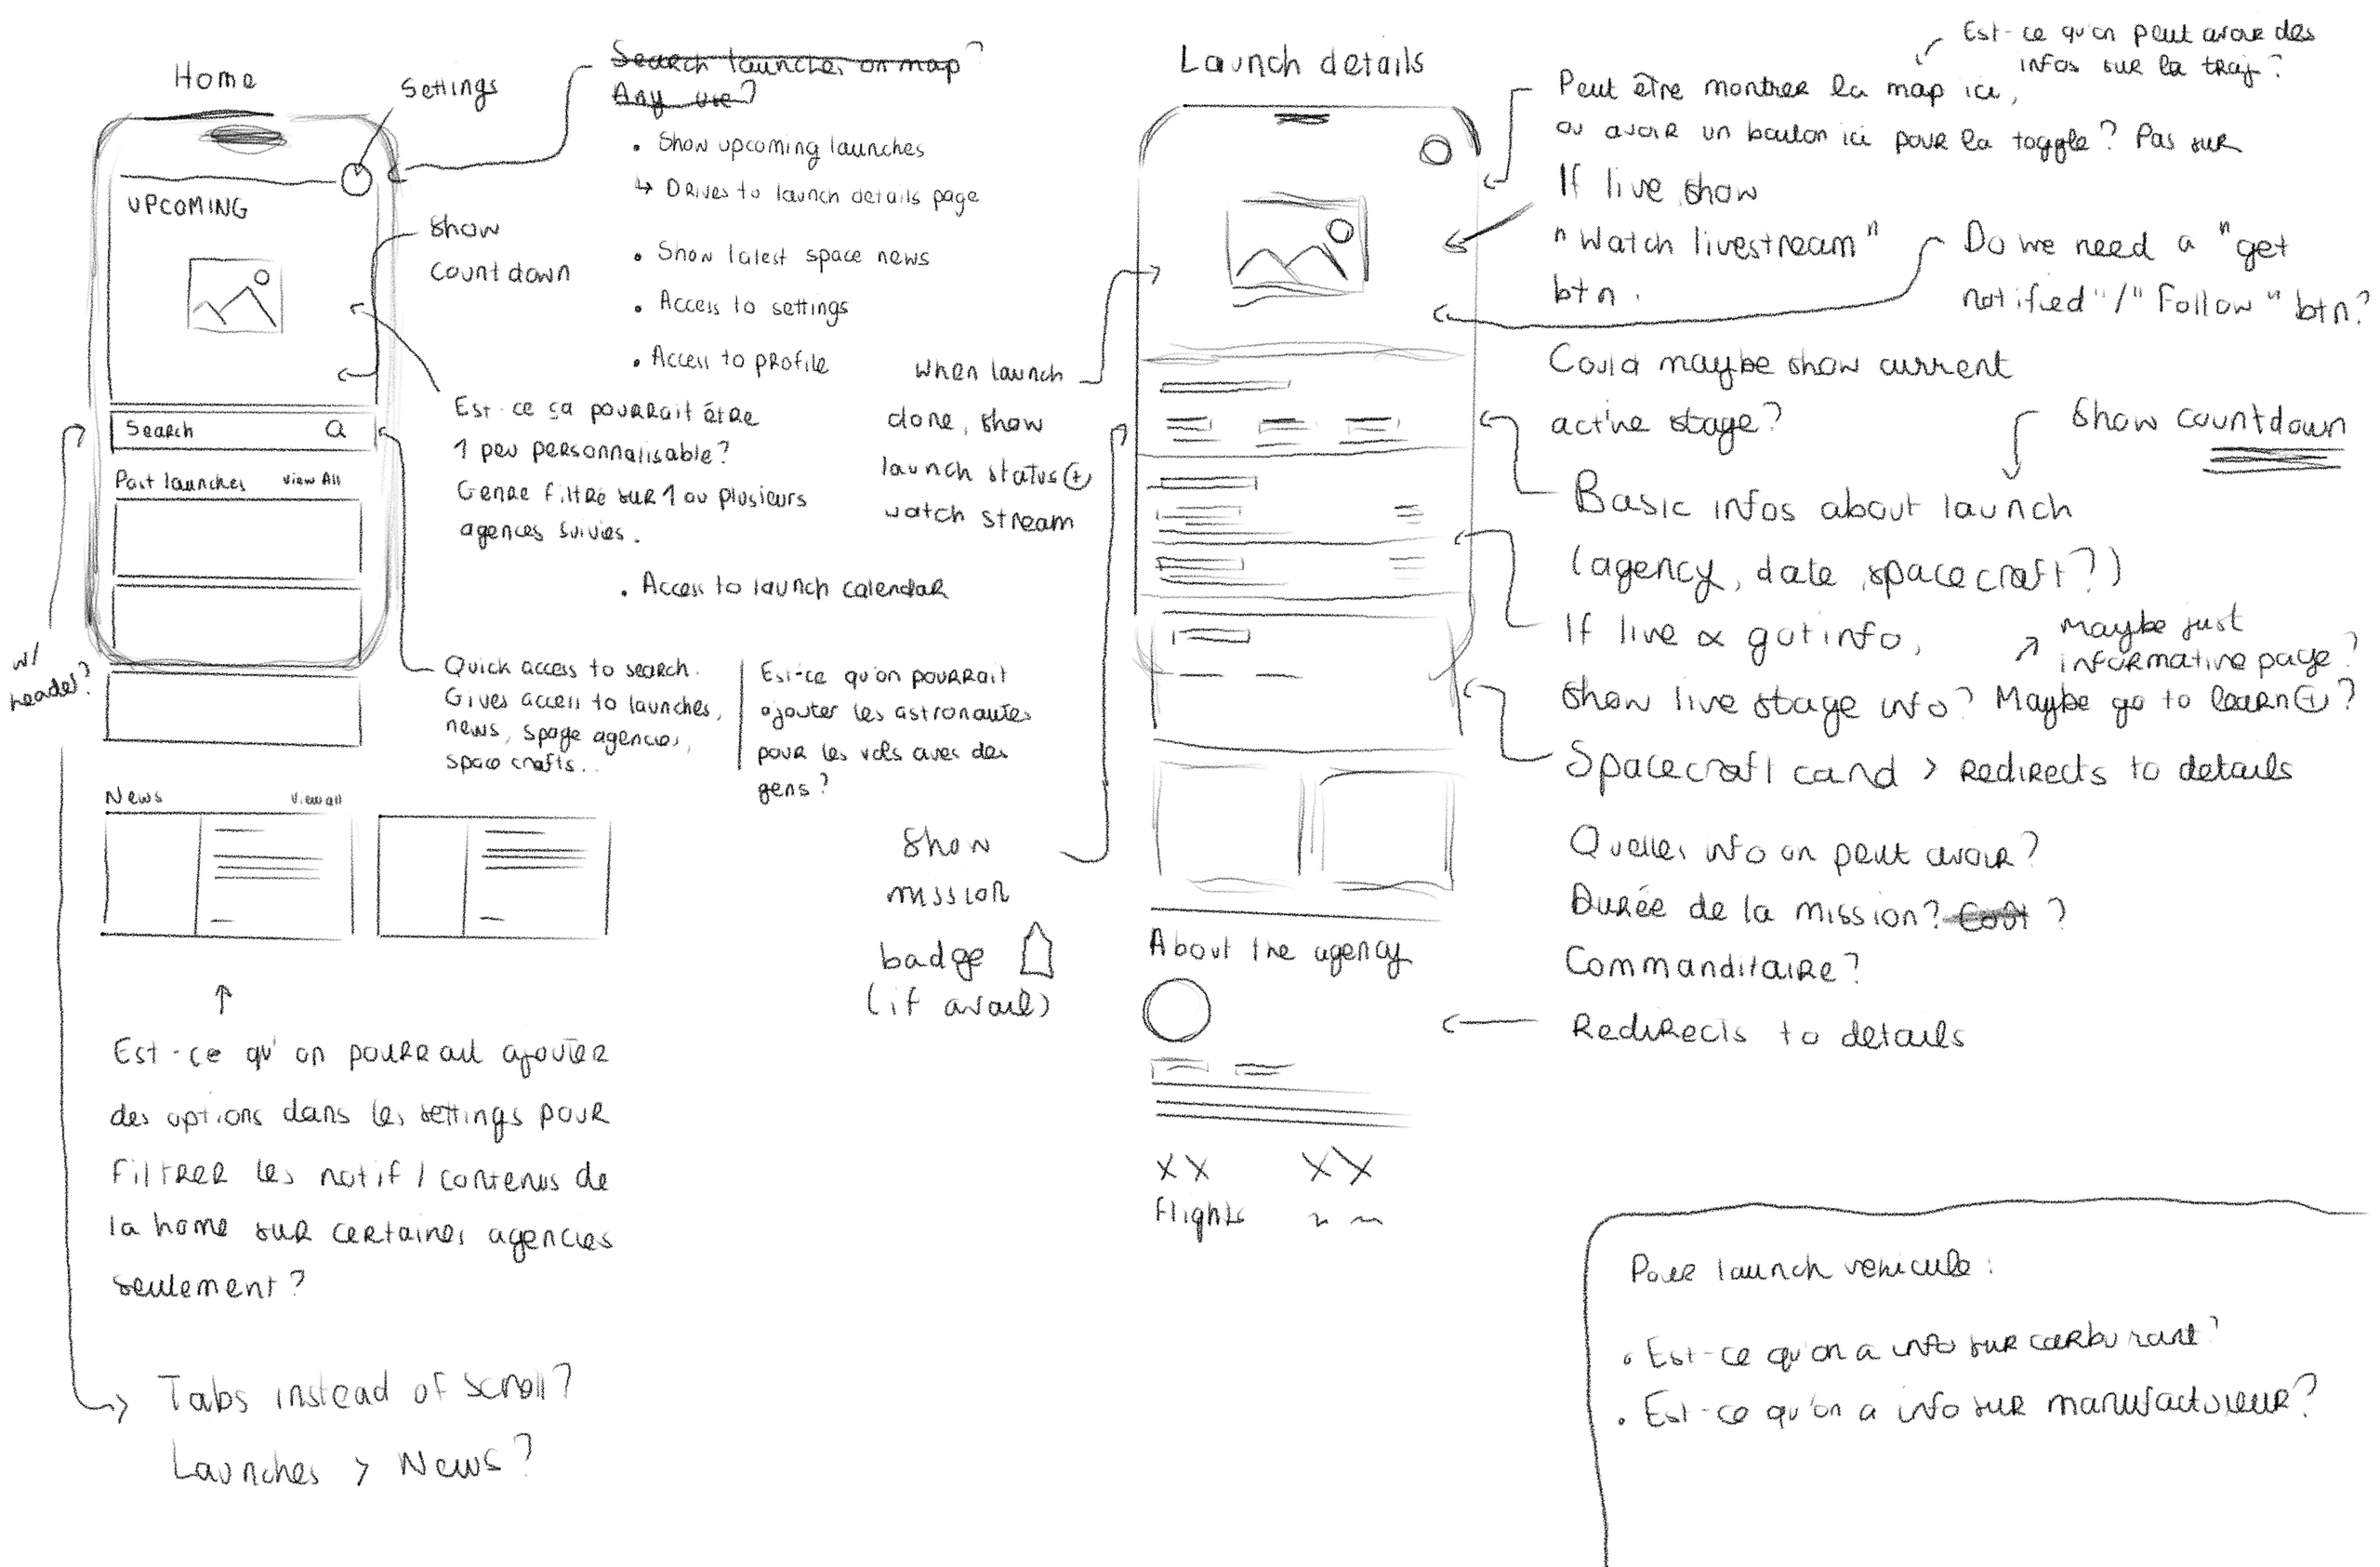 Home
Settings
UPCOMING
Show
countdown
Search
Past launches
View All
w/
header?
News
View all
Search launches on map?
Any use?
• Show upcoming launches
↳ Drives to launch details page
• Show latest space news
• Access to settings
• Access to profile
Est-ce ça pourrait être
1 peu personnalisable?
Genre filtré sur 1 ou plusieurs
agences suivies.
• Access to launch calendar
Quick access to search.
Gives access to launches,
news, spage agencies,
space crafts...
Est-ce qu'on pourrait
ajouter les astronautes
pour les vols avec des
gens?
Est-ce qu'on pourrait ajouter
des options dans les settings pour
filtrer les notif / contenus de
la home sur certaines agencies
seulement?
Tabs instead of scroll?
Launches > News?
Launch details
When launch
done, show
launch status +
watch stream
Show
mission
badge
(if avail)
About the agency
XX
XX
flights
Est-ce qu'on peut avoir des
infos sur la traj?
Peut être montrer la map ici,
ou avoir un bouton ici pour la toggle? Pas sur
If live show
"Watch livestream"
btn.
Do we need a "get
notified"/"Follow" btn?
Could maybe show current
active stage?
Show countdown
Basic infos about launch
(agency, date, spacecraft?)
If live & got info,
show live stage info?
Maybe just
informative page?
Maybe go to learn +?
Spacecraft card > Redirects to details
Quelles info on peut avoir?
Durée de la mission? Coût?
Commanditaire?
Redirects to details
Pour launch vehicule:
• Est-ce qu'on a info sur carburant?
• Est-ce qu'on a info sur manufactureur?